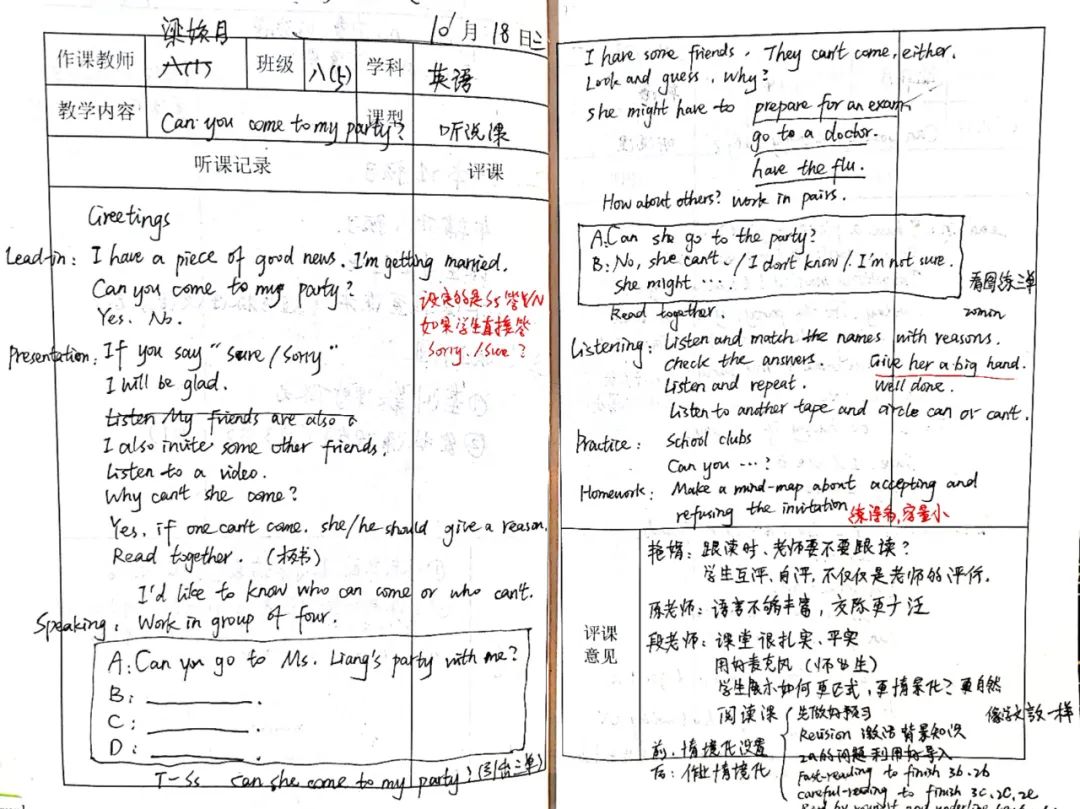 梁姣月 10月18日三
作课教师 八(1) 班级 八(5) 学科 英语
教学内容 Can you come to my party? 课型 听说课
听课记录 评课
Greetings
Lead-in: I have a piece of good news. I'm getting married.
Can you come to my party?
设定的是Ss答Y/N
Yes. No.
如果学生直接答
Presentation: If you say "sure/sorry"
Sorry./Sure?
I will be glad.
Listen My friends are also
I also invite some other friends.
Listen to a video.
Why can't she come?
Yes, if one can't come. she/he should give a reason.
Read together. (板书)
I'd like to know who can come or who can't.
Speaking: Work in group of four.
A: Can you go to Ms. Liang's party with me?
B: ________.
C: ________.
D: ________.
T-Ss can she come to my party?
I have some friends. They can't come, either.
Look and guess. Why?
she might have to prepare for an exam
go to a doctor.
have the flu.
How about others? work in pairs.
A: Can she go to the party?
B: No, she can't. / I don't know /. I'm not sure.
She might ....
看图练三单
Read together.
20min
Listening: Listen and match the names with reasons.
check the answers. Give her a big hand.
Listen and repeat. Well done.
Listen to another tape and circle can or can't.
Practice: School clubs
Can you ...?
Homework: Make a mind-map about accepting and
refusing the invitation 练得少,容量小
评课意见
艳婧: 跟读时、老师要不要跟读?
学生互评、自评,不仅仅是老师的评价.
陈老师: 语言不够丰富,交际更广泛
段老师: 课堂很扎实、平实
用好麦克风 (师&生)
学生展示如何更正式,更情景化?更自然
阅读课 先做好预习 像语文散文一样
Revision 激活背景知识
前: 情境化设置
2a的问题利用好导入
后: 作业情境化
Fast-reading to finish 3b.2b
careful-reading to finish 3c,2c,2e